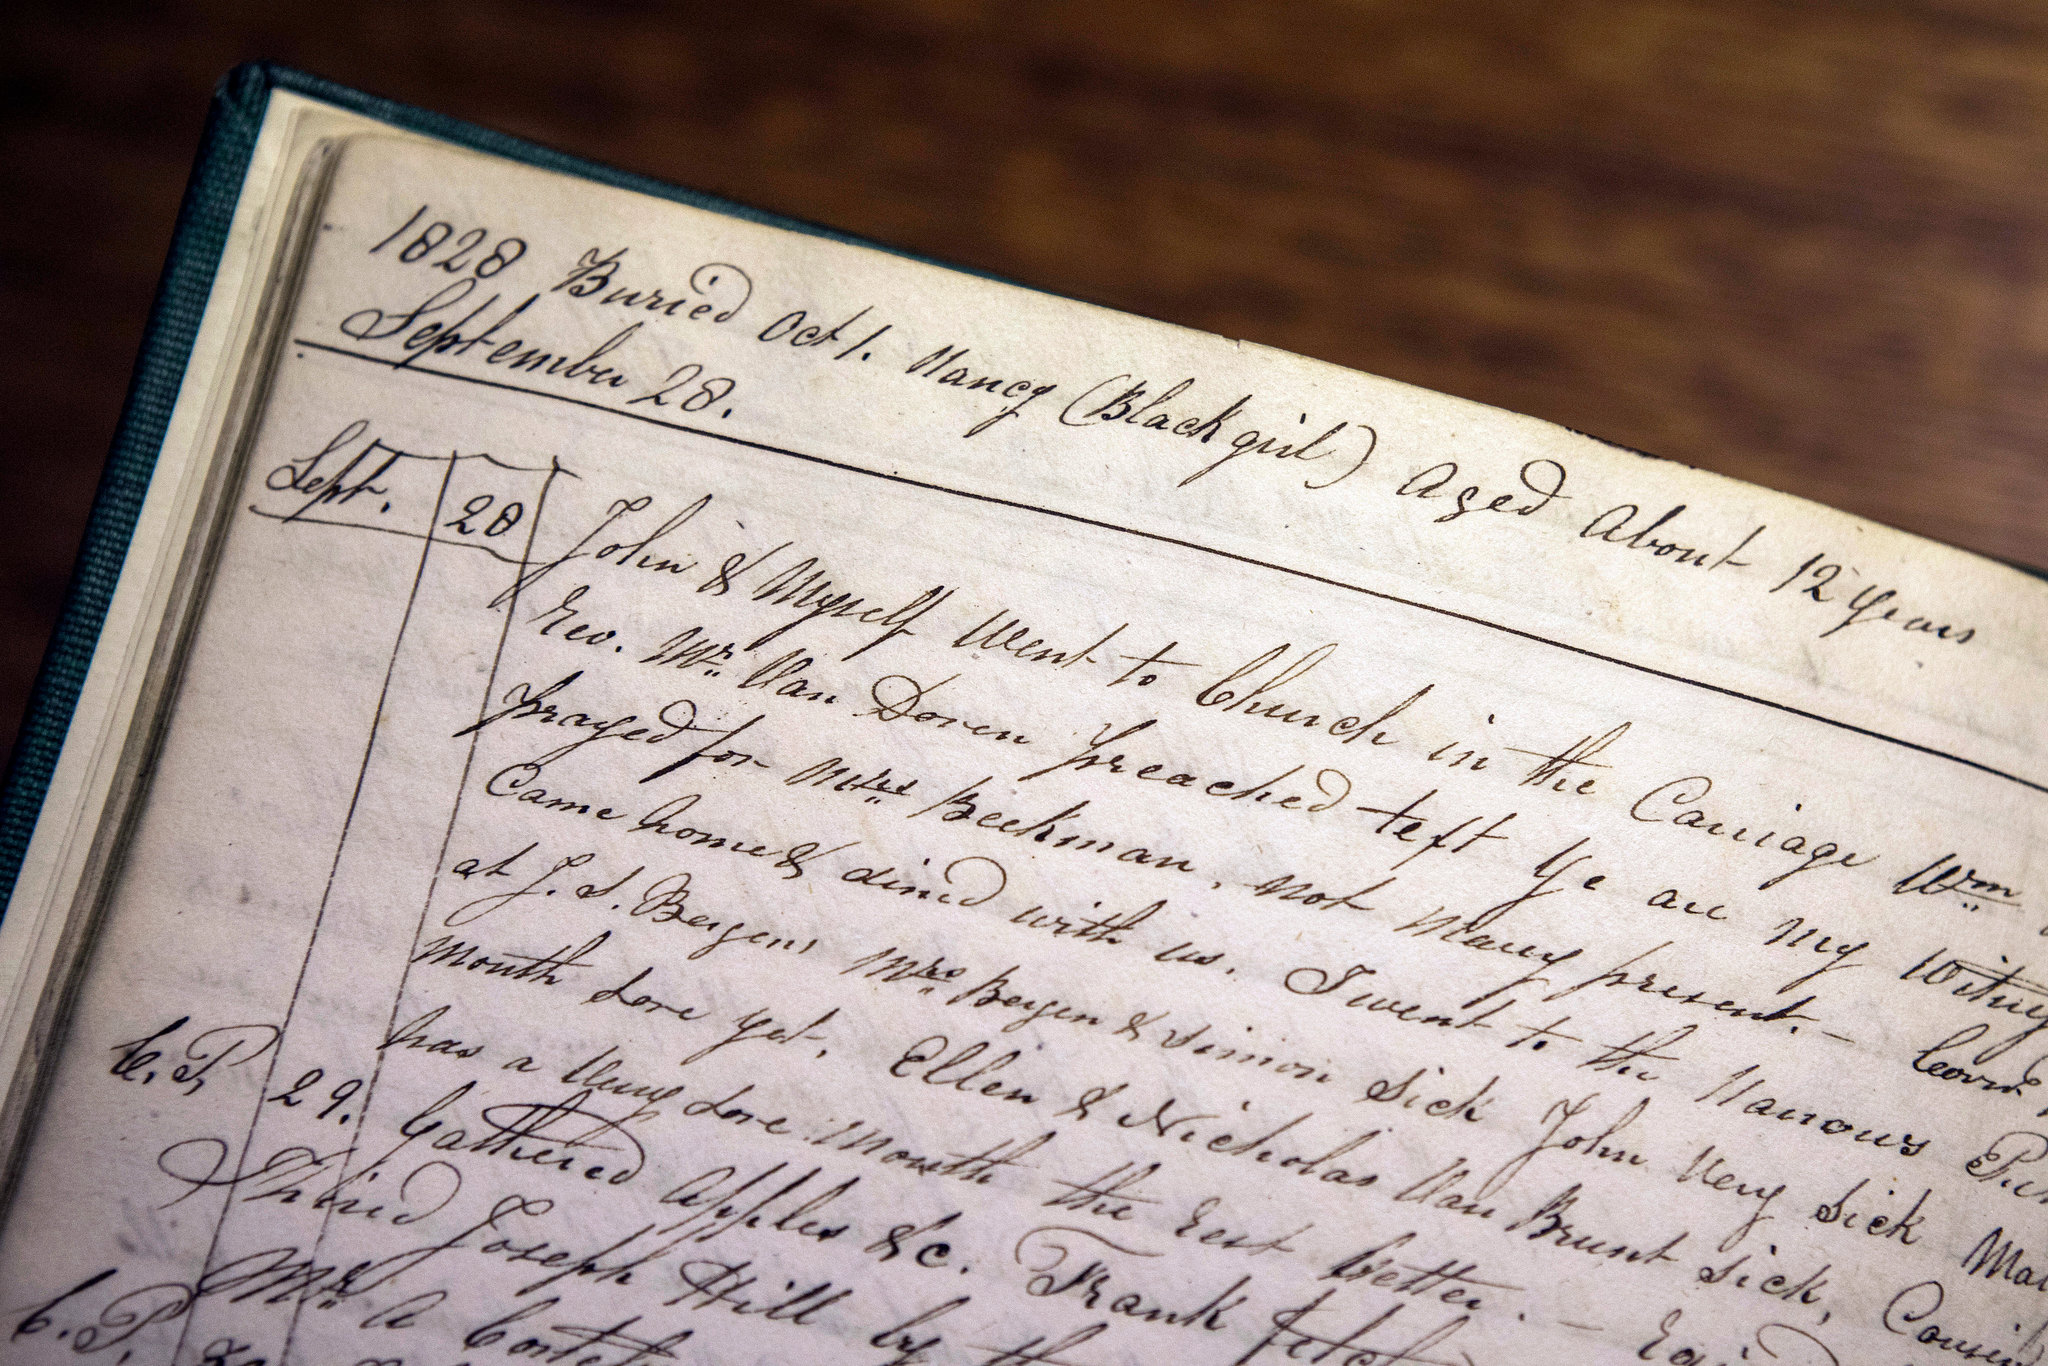 1828 Buried Oct 1. Nancy (Black girl) Aged About 12 years
September 28.
Sept. 28 John & Myself Went to Church in the Carriage Wm
Rev. Mr. Van Doren preached text Ye are my
prayed for Mrs. Beekman, not Many present. —
Came home & dined with us. I went to the Narrows
at J. S. Bergens Mrs Bergen & Simon Sick John Very Sick
Month Sore yet. Ellen & Nicholas Van Brunt Sick,
has a Very Sore Mouth the Rest better. —
C. P. 29. Gathered Apples &c. Frank
Third Joseph Hill by
C. P. Mr A